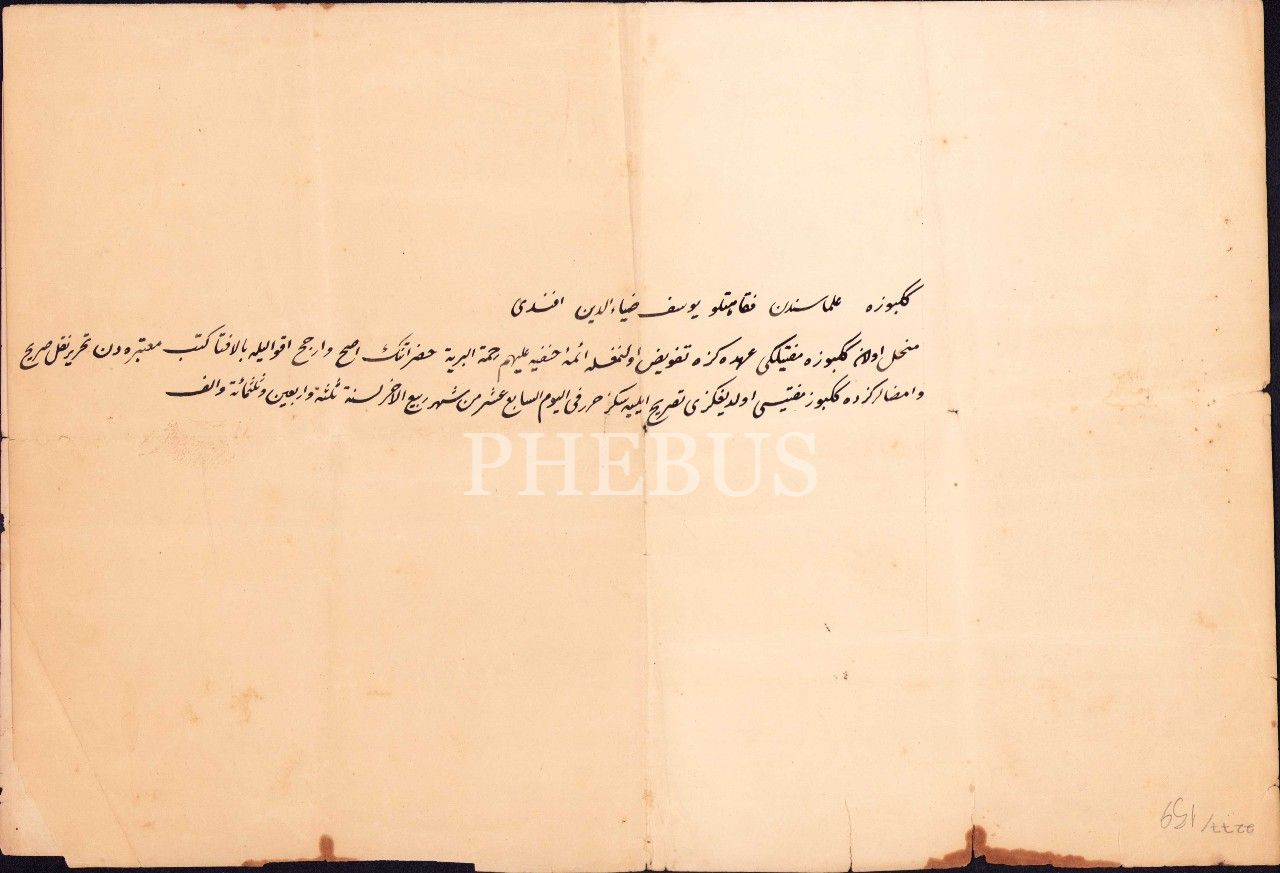 ككبوزه علماسندن فقاهتلو يوسف ضياء الدين افندى
منحل اولان ككبوزه مفتيلكى عهده كزه تفويض اولنمغله ائمۀ حنفيه عليهم رحمة البرية حضراتنك اصح وارجح اقواليله بالافتا كتب معتبره دن تحرير نقل صريح
وامضالركزده ككبوزه مفتيسى اولديغكزى تصريح ايليه سكز حرر فى اليوم السابع عشر من شهر ربيع الاخر لسنة ثلثة واربعين وثلثمائة والف
PHEBUS
2277/159